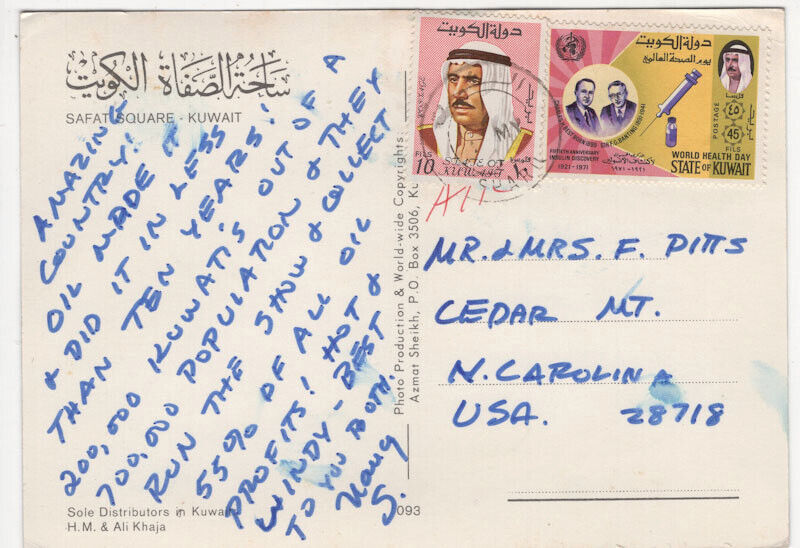 ساحة الصفاة الكويت
SAFAT SQUARE - KUWAIT
AMAZING
COUNTRY!
OIL MADE IT
& DID IT IN LESS
THAN TEN YEARS!
200,000 KUWATI'S OUT OF A
700,000 POPULATION & THEY
RUN THE SHOW & COLLECT
55% OF ALL OIL
PROFITS! HOT &
WINDY - BEST
TO YOU BOTH.
S.
Sole Distributors in Kuwait
H.M. & Ali Khaja
093
Photo Production & World-wide Copyrights.
Azmat Sheikh, P.O. Box 3506, Ku
دولة الكويت
فلوس
FILS
10
١٠
STATE OF
KUWAIT
دولة الكويت
يوم الصحة العالمي
CHARLES BEST
SIR F.G. BANTING 1891-1941
FIFTIETH ANNIVERSARY
INSULIN DISCOVERY
1921-1971
١٩٢١-١٩٧١
POSTAGE
٤٥
45
FILS
WORLD HEALTH DAY
STATE OF KUWAIT
MR. & MRS. F. PITTS
CEDAR MT.
N. CAROLINA
USA. 28718